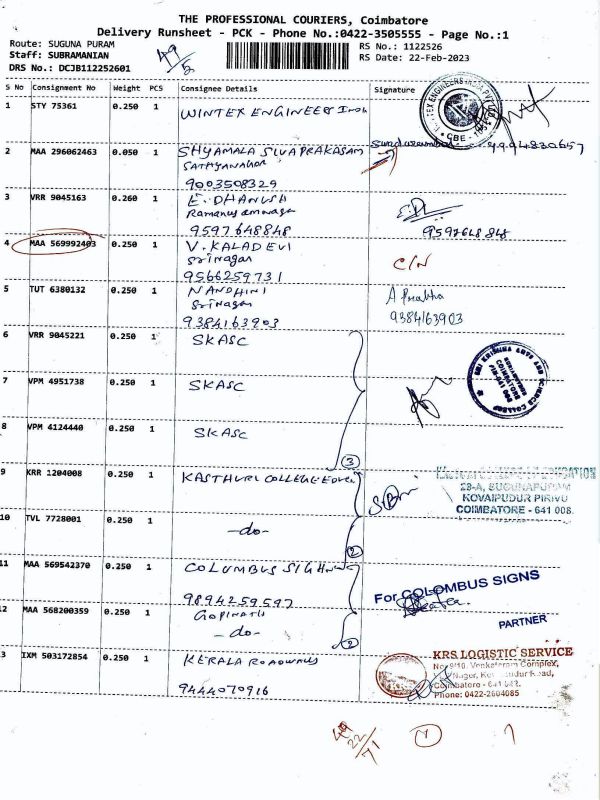 THE PROFESSIONAL COURIERS, Coimbatore
Delivery Runsheet - PCK - Phone No.:0422-3505555 - Page No.:1
Route: SUGUNA PURAM
Staff: SUBRAMANIAN
DRS No.: DCJB112252601
RS No.: 1122526
RS Date: 22-Feb-2023
49/5
S No Consignment No Weight PCS Consignee Details Signature
1 STY 75361 0.250 1 WINTEX ENGINEERS
CBE
2 MAA 296062463 0.050 1 SHYAMALA SIVAPRAKASAM
SATHYANAGAR
9003508329
3 VRR 9045163 0.260 1 E. DHANUSH
9597648848
9597648848
4 MAA 569992403 0.250 1 V. KALADEVI
Srinagar
9566259731
C/N
5 TUT 6380132 0.250 1 NANDHINI
Srinagar
9384163903
A Prabha
9384163903
6 VRR 9045221 0.250 1 SKASC
7 VPM 4951738 0.250 1 SKASC
SRI KRISHNA ARTS AND SCIENCE COLLEGE
COIMBATORE
8 VPM 4124440 0.250 1 SKASC
3
9 KRR 1204008 0.250 1 KASTHURI COLLEGE
29-A, SUGUNAPURAM
KOVAIPUDUR PIRIVU
COIMBATORE - 641 008.
10 TVL 7728001 0.250 1 -do-
2
11 MAA 569542370 0.250 1 COLUMBUS
9894259597
For COLOMBUS SIGNS
PARTNER
12 MAA 568200359 0.250 1 GOPINATH
-do-
2
3 IXM 503172854 0.250 1 KERALA ROADWAYS
9444070916
KRS LOGISTIC SERVICE
Venkateram Complex,
Phone: 0422-2604085
49
22/71